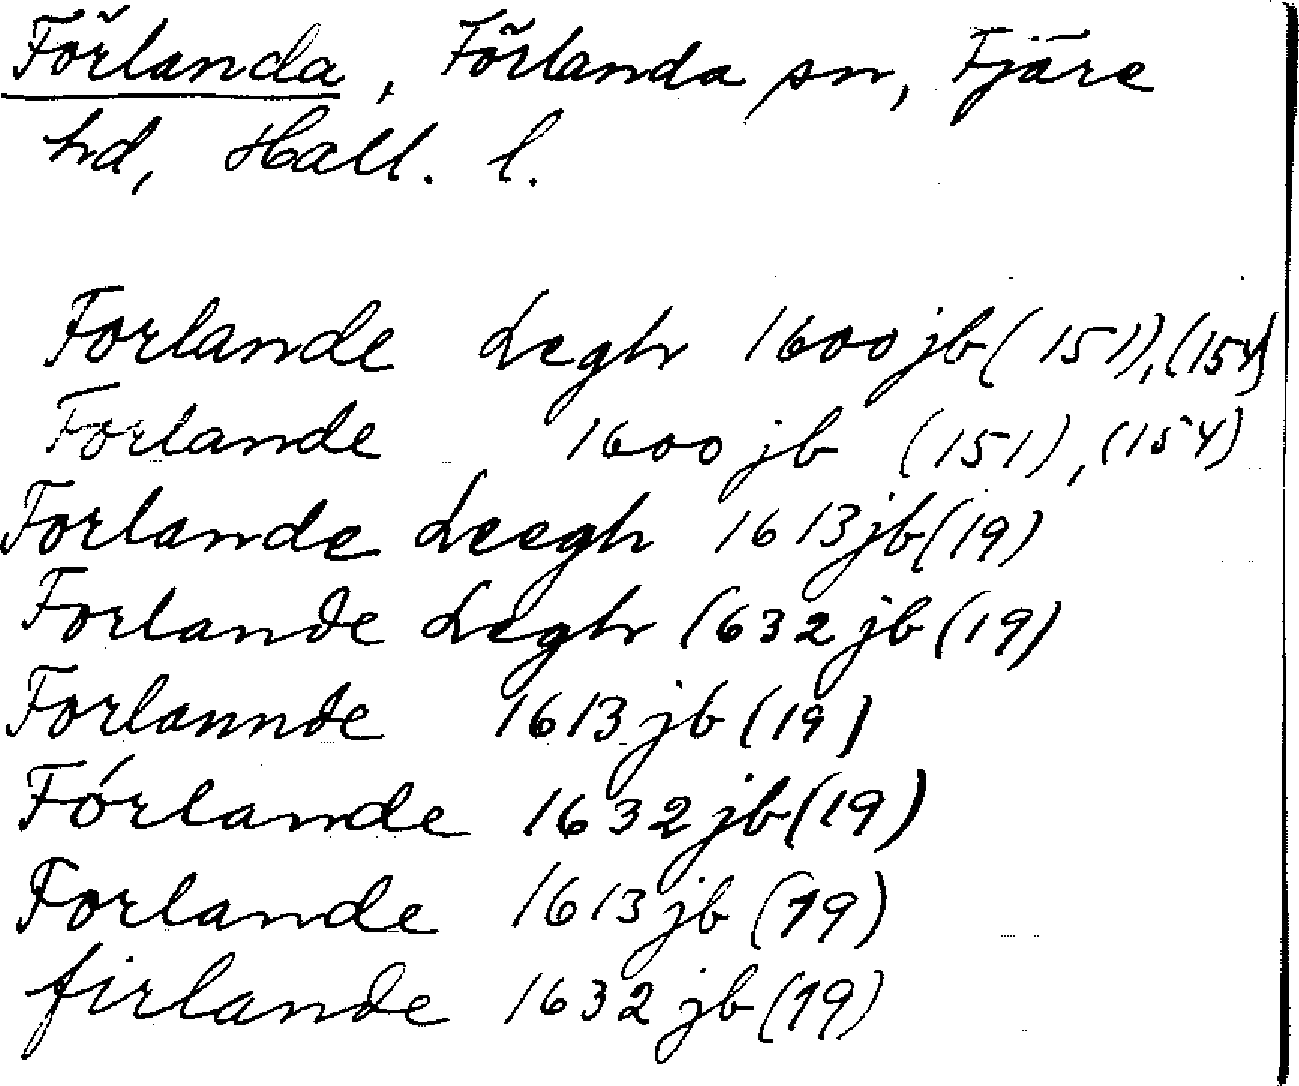 Förlanda, Förlanda sn, Fjäre
hd, Hall. l.
Forlande Legh 1600 jb (151), (154)
Forlande 1600 jb (151), (154)
Forlande Leegh 1613 jb (19)
Forlande Legh 1632 jb (19)
Forlannde 1613 jb (19)
Fórlande 1632 jb (19)
Forlande 1613 jb (19)
firlande 1632 jb (19)